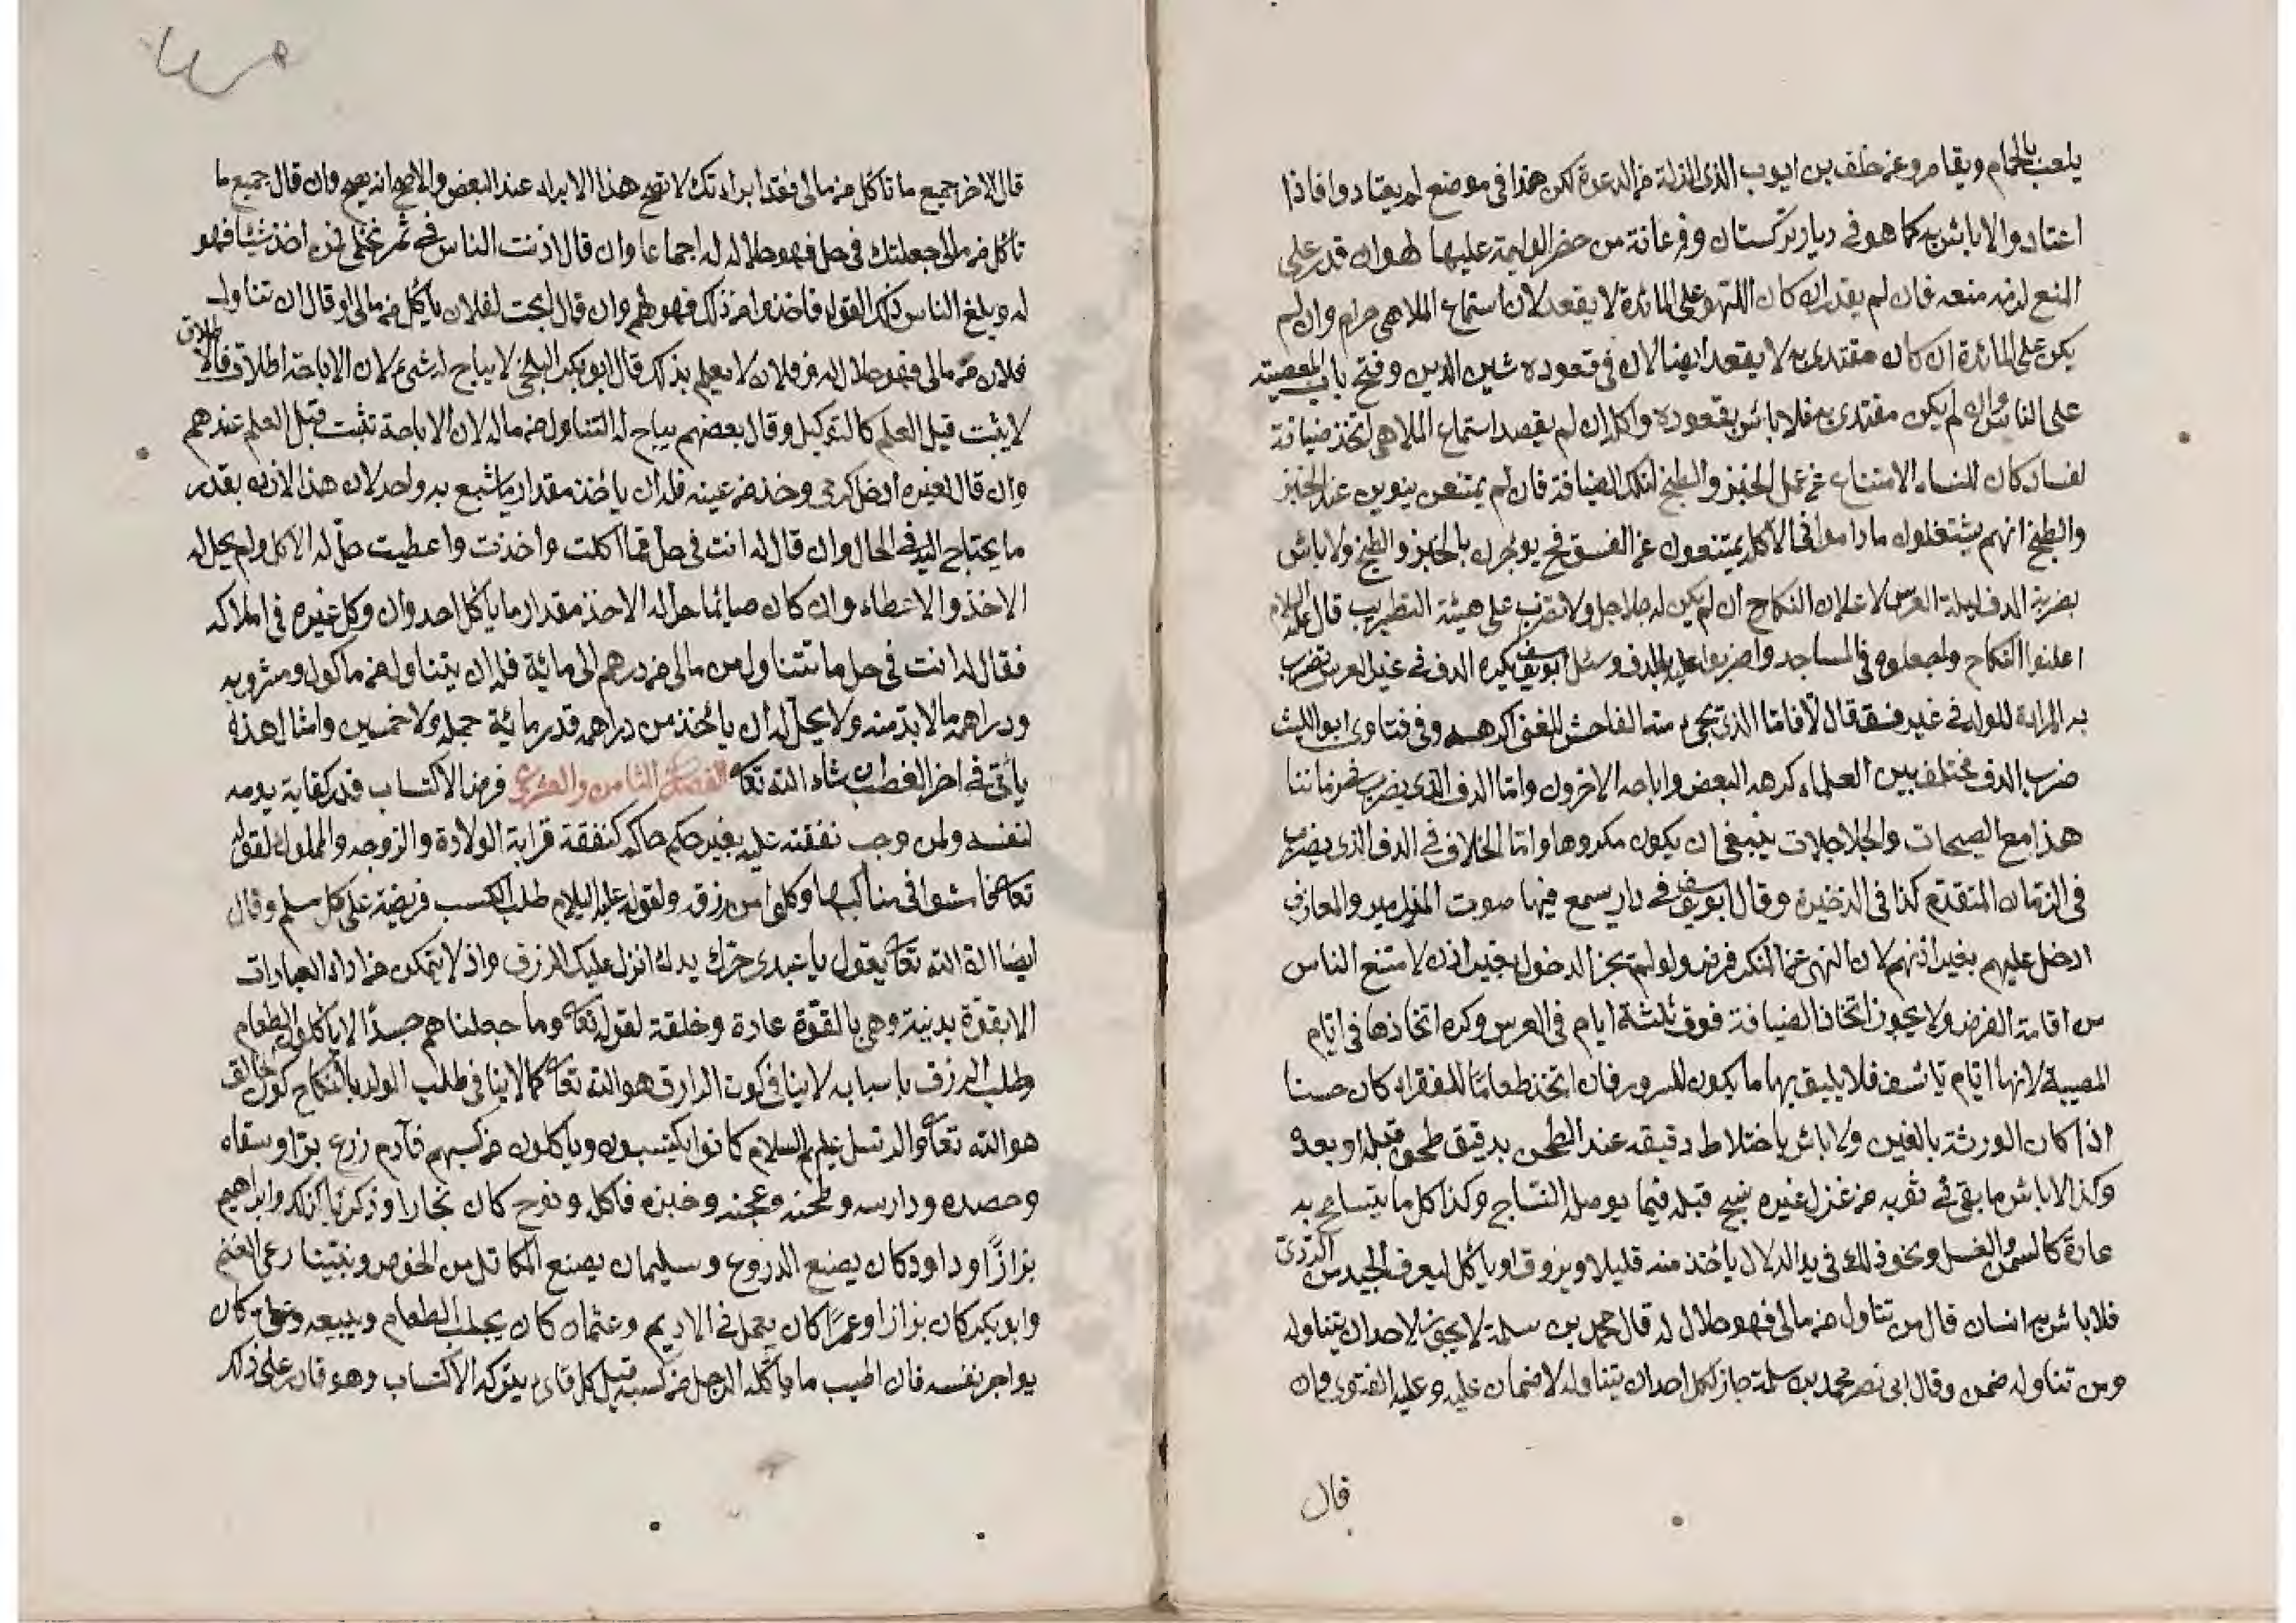 يلعب بالحمام ويقامر وعن خلف بن ايوب الذى الزلة من الدعوة لكن هذا فى موضع لم يعتادوا فاذا
اعتاد والا باش به كما هو فى ديار تركستان وفرغانة من حضر الوليمة عليها لهو ان قدر على
المنع لزمه منعه فان لم يقدر ان كان اللهو على المائدة لا يقعد لان استماع الملاهى حرام وان لم
يكن على المائدة ان كان مقتدى به لا يقعد ايضا لان فى قعوده شين الدين وفتح باب المعصية
على الناس وان لم يكن مقتدى به فلا باس بقعوده واكله ان لم يقصد استماع الملاهى اتخذ ضيافة
لفساد كان للنساء الامتناع عن عمل الخبز والطبخ لتلك الضيافة فان لم يمتنعن ينوين عند الخبز
والطبخ انهم يشتغلون ما داموا فى الاكل يمتنعون عن الفسق فح يوجرن بالخبز والطبخ ولا باس
بضرب الدف ليلة العرس لاعلان النكاح ان لم يكن له جلاجل ولا تضرب على هيئة التطريب قال عليه السلام
اعلنوا النكاح واجعلوه فى المساجد واضربوا عليه بالدف وسئل ابو يوسف ايكره الدف فى غير العرس تضرب
به المراة للولد فى غير فسق قال لا فاما الذى يجىء منه الفاحش للغنى اكرهه وفى فتاوى ابو الليث
ضرب الدف مختلف بين العلماء كرهه البعض واباحه الاخرون واما الدف الذى يضرب فى زماننا
هذا مع الصيحات والجلاجلات ينبغى ان يكون مكروها واما الخلاف فى الدف الذى يضرب
فى الزمان المتقدم كذا فى الذخيرة وقال ابو يوسف فى دار سمع فيها صوت المزامير والمعازف
ادخل عليهم بغير اذنهم لان النهى عن المنكر فرض ولو لم يجز الدخول بغير اذن لامتنع الناس
من اقامة الفرض ولا يجوز اتخاذ الضيافة فوق ثلثة ايام فى العرس وكره اتخاذها فى ايام
المصيبة لانها ايام تاسف فلا يليق بها ما يكون للسرور فان اتخذ طعاما للفقراء كان حسنا
اذا كان الورثة بالغين ولا باس باختلاط دقيقه عند الطحن بدقيق طحن قبله او بعده
وكذا لا باس ما بقى فى ثوبه من غزل غيره نسج قبله فيما يوصل النساج وكذا كل ما يتسامح به
عادة كالسمن والعسل ونحو ذلك فى يد الدلال ياخذ منه قليلا ويذوق او ياكل ليعرف الجيد من الردى
فلا باس به انسان قال من تناول من مالى فهو حلال له قال محمد بن سلمة لا يجوز لاحد ان يتناوله
ومن تناوله ضمن وقال ابى نصر محمد بن سلمة جاز لكل احد ان يتناوله لا ضمان عليه وعليه الفتوى وان
قال
قال لاخر جميع ما تاكل من مالى فقد ابراتك لا تصح هذا الابراء عند البعض والاصح انه يصح وان قال جميع ما
تاكل من مالى جعلتك فى حل فهو حلال له اجماعا وان قال اذنت الناس فى ثمر نخلى فمن اخذ شيئا فهو
له وبلغ الناس ذلك القول فاخذوا من ذلك فهو لهم وان قال ابحت لفلان ياكل من مالى او قال ان تناول
فلان من مالى فهو حلال له وفلان لا يعلم بذلك قال ابو بكر البلخى لا يباح له شىء لان الاباحة اطلاق فالاطلاق
لا يثبت قبل العلم كالتوكيل وقال بعضهم يباح له التناول من ماله لان الاباحة تثبت قبل العلم عندهم
وان قال لغيره ادخل كرمى وخذ من عنبه فله ان ياخذ مقدار ما يشبع به واحد لان هذا الاذن بقدر
ما يحتاج اليه فى الحال وان قال له انت فى حل مما اكلت واخذت واعطيت حل له الاكل ولم يحل له
الاخذ والاعطاء وان كان صائما حل له الاخذ مقدار ما ياكل احد وان وكل غيره فى املاكه
فقال له انت فى حل ما تتناول من مالى من درهم الى مائة فله ان يتناول من ماكول ومشروبه
ودراهمه ما لابد منه ولا يحل له ان ياخذ من دراهمه قدر مائة جملة ولا خمسين وامثال هذه
ياتى فى اخر الفصل ان شاء الله تعا الفصل الثامن والعشرون فرض الاكتساب قدر كفاية يومه
لنفسه ولمن وجب نفقته عليه بغير حكم حاكم كنفقة قرابة الولادة والزوجه والمملوك لقوله
تعا فامشوا فى مناكبها وكلوا من رزقه ولقوله عليه السلام طلب الكسب فريضة على كل مسلم وقال
ايضا ان الله تعا يقول يا عبدى حرك يدك انزل عليك الرزق واذ لا يتمكن من اداء العبادات
الا بقوة بدنية وهى بالقوة عادة وخلقة لقوله تعا وما جعلناهم جسدا لا ياكلون الطعام
وطلب الرزق باسبابه لا ينافى كون الرازق هو الله تعا كما لا ينافى طلب الولد بالنكاح كون الخالق
هو الله تعا والرسل عليهم السلام كانوا يكتسبون وياكلون من كسبهم فآدم زرع برا وسقاه
وحصده ودارسه وطحنه وعجنه وخبزه فاكل ونوح كان نجارا وذكريا كذلك وابراهيم
بزازا وداود كان يصنع الدروع وسليمان يصنع المكاتل من الخوص ونبينا رعى الغنم
وابو بكر كان بزازا وعمر كان يعمل فى الاديم وعثمان كان يجلب الطعام ويبيعه وعلى كان
يواجر نفسه فان اطيب ما ياكله الرجل من كسبه قيل كل قارئ يترك الاكتساب وهو قادر على ذلك